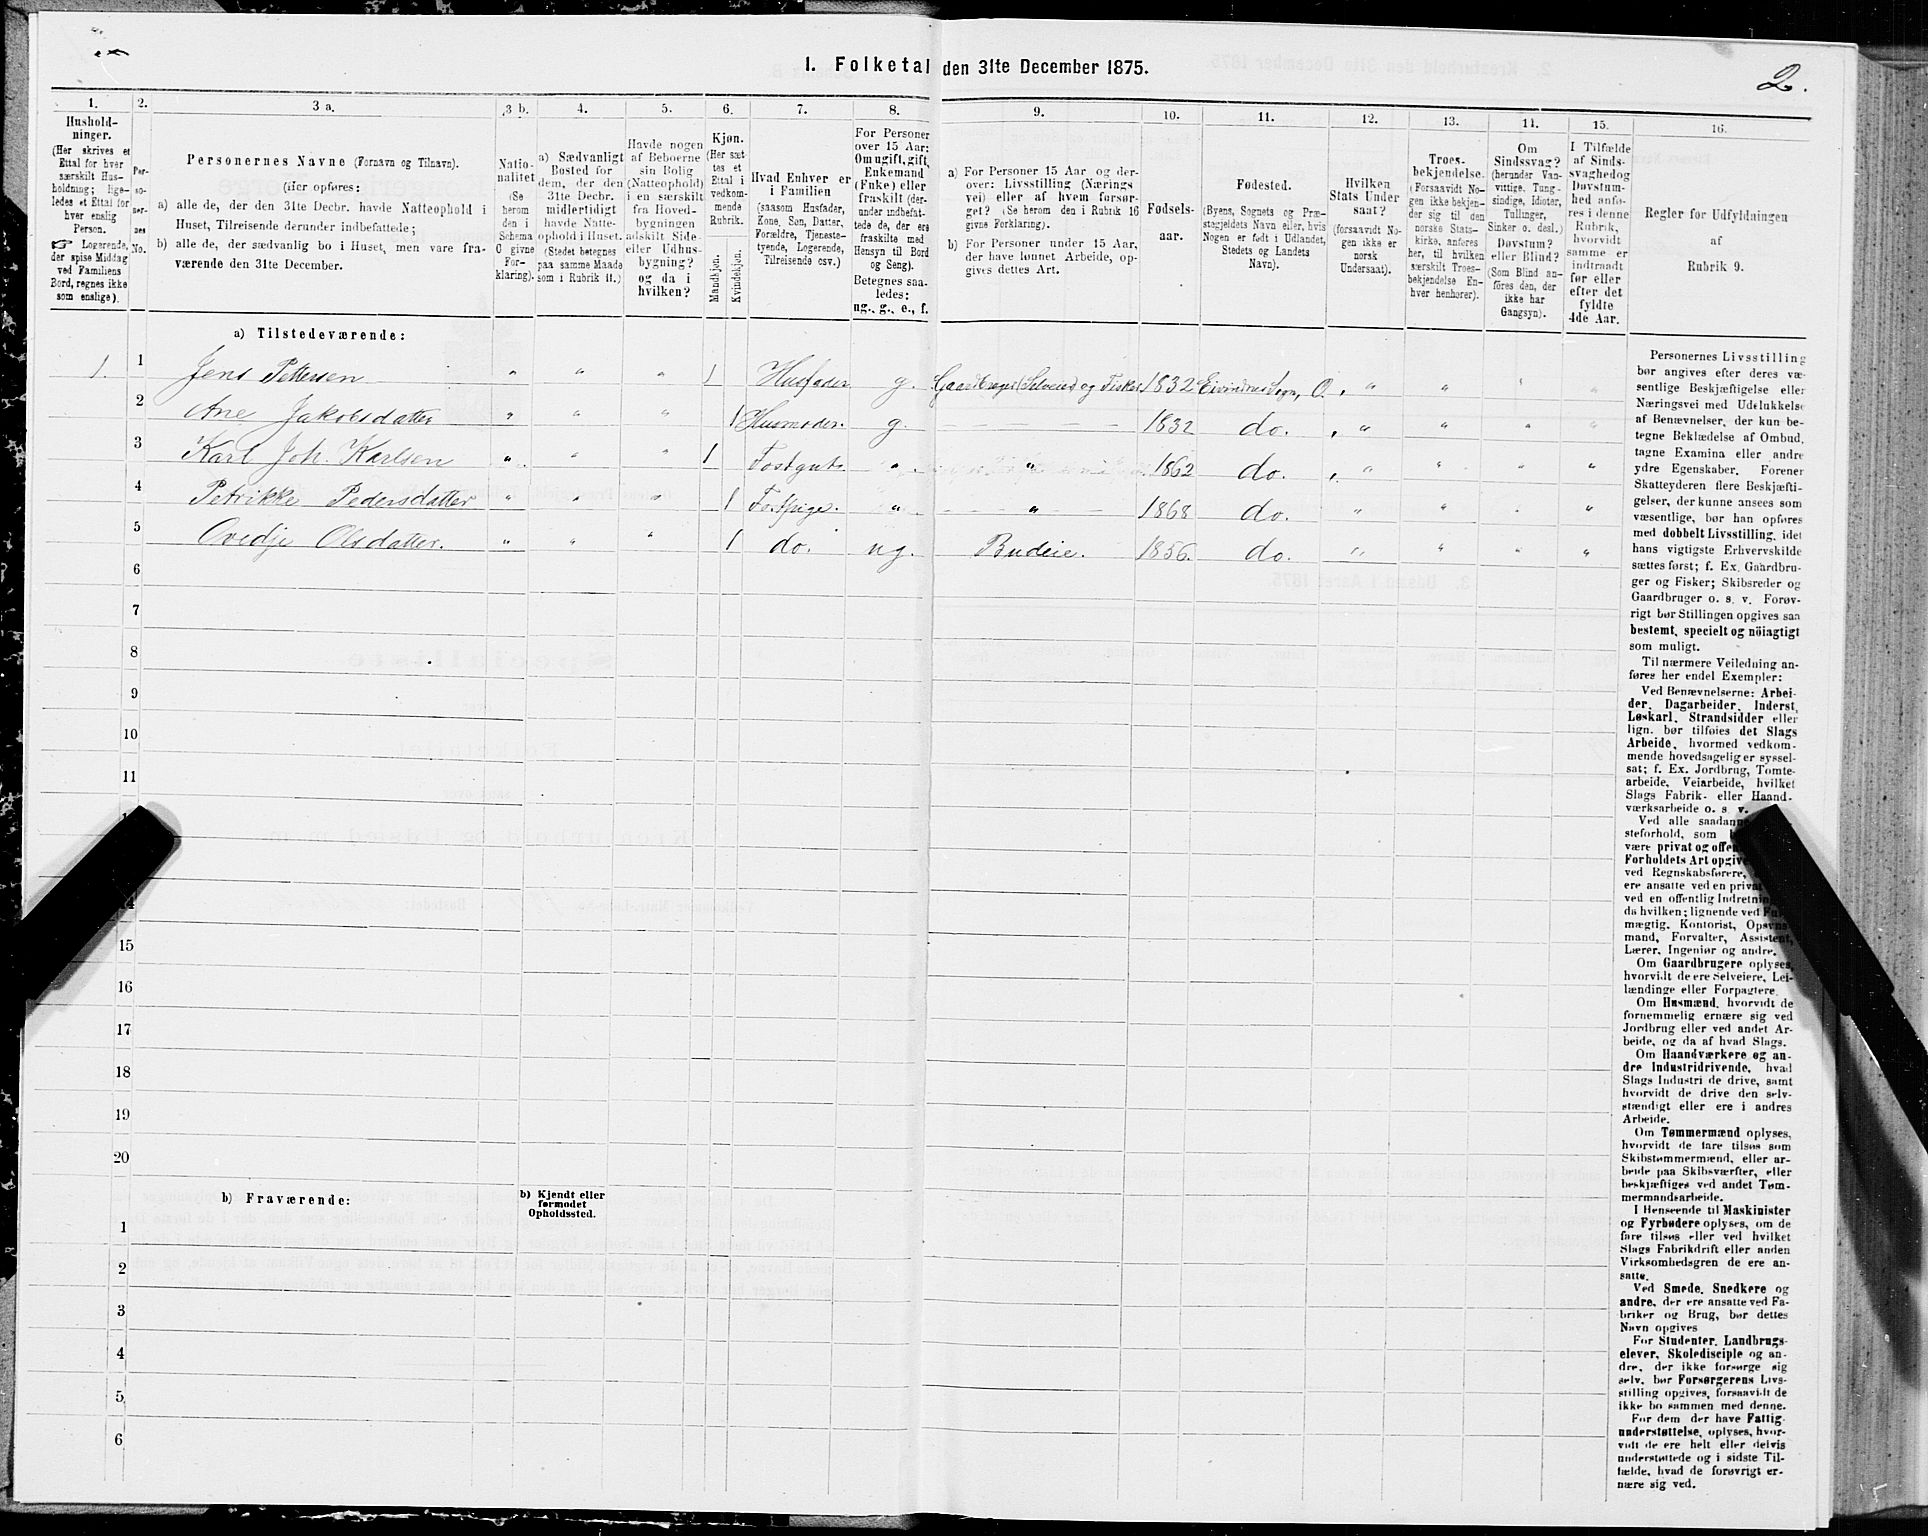 I. Folketal den 31te December 1875.
2.
1. 2. 3 a. 3 b. 4. 5. 6. 7. 8. 9. 10. 11. 12. 13. 14. 15. 16.
Hushold-
ninger.
(Her skrives et
Ettal for hver
særskilt Hus-
holdning; lige-
ledes et Ettal for
hver enslig
Person.
☞ Logerende,
der spise Middag
ved Familiens
Bord, regnes ikke
som enslige).
Per-
so-
ner-
nes
No.
Personernes Navne (Fornavn og Tilnavn).
(Her opføres:
a) alle de, der den 31te Decbr. havde Natteophold i
Huset, Tilreisende derunder indbefattede;
b) alle de, der sædvanlig bo i Huset, men vare fra-
værende den 31te December.
Natio-
nalitet
(Se
herom
den i
Schema
O givne
For-
klaring).
a) Sædvanligt
Bosted for
dem, der den
31te Decbr.
midlertidigt
havde Natte-
ophold i Huset.
(Stedet betegnes
paa samme Maade
som i Rubrik 11.)
Havde nogen
af Beboerne
sin Bolig
(Natteophold)
i en særskilt
fra Hoved-
bygningen
adskilt Side-
eller Udhus-
bygning?
og da i
hvilken?
Kjøn.
(Her sæt-
tes et
Ettal i
vedkom-
mende
Rubrik.
Mandkjøn.
Kvindekjøn.
Hvad Enhver er
i Familien
(saasom Husfader,
Kone, Søn, Datter,
Forældre, Tjeneste-
tyende, Logerende,
Tilreisende osv.)
For Personer
over 15 Aar:
Om ugift, gift,
Enkemand
(Enke) eller
fraskilt (der-
under indbefat-
tede de, der ere
fraskilte med
Hensyn til Bord
og Seng).
Betegnes saa-
ledes:
ug., g., e., f.
a) For Personer 15 Aar og der-
over: Livsstilling (Nærings
vei) eller af hvem forsør-
get? (Se herom den i Rubrik 16
givne Forklaring).
b) For Personer under 15 Aar,
der have lønnet Arbeide, op-
gives dettes Art.
Fødsels-
aar.
Fødested.
(Byens, Sognets og Præ-
stegjeldets Navn eller, hvis
Nogen er født i Udlandet,
Stedets og Landets
Navn).
Hvilken
Stats Under
saat?
(forsaavidt No-
gen ikke er
norsk
Undersaat).
Troes-
bekjendelse.
(Forsaavidt No-
gen ikke bekjen-
der sig til den
norske Stats-
kirke, anføres
her, til hvilken
særskilt Troes-
bekjendelse En-
hver henhører).
Om
Sindssvag?
(herunder Van-
vittige, Tung-
sindige, Idioter,
Tullinger,
Sinker o. desl.)
Døvstum?
eller Blind?
(Som Blind an-
føres den, der
ikke har
Gangsyn).
I Tilfælde
af Sinds-
svaghed og
Døvstum-
hed anfø-
res i denne
Rubrik,
hvorvidt
samme er
indtraadt
før eller
efter det
fyldte
4de Aar.
Regler for Udfyldningen
af
Rubrik 9.
a) Tilstedeværende:
1. 1 Jens Pettersen " " " 1 Husfader g. Gaardbruger (Selveier) og Fisker 1832 " " " "
2 Ane Jakobsdatter " " " 1 Husmoder. g. 1832 do. " " " "
3 Karl Joh. Karlsen " " " 1 Fostgut " " 1862 do. " " " "
4 Petrikke Pedersdatter " " " 1 Fostpige. " " 1868 do. " " " "
5 Ovedje Olsdatter. " " " 1 do. ug. Budeie. 1856. do. " " " "
6
7
8
9
10
11
14
15
16
17
18
19
20
b) Fraværende:
b) Kjendt eller
formodet
Opholdssted.
1
2
3
4
5
6
Personernes Livsstilling
bør angives efter deres væ-
sentlige Beskjæftigelse eller
Næringsvei med Udelukkelse
af Benævnelser, der kun be-
tegne Beklædelse af Ombud,
tagne Examina eller andre
ydre Egenskaber. Forener
Skatteyderen flere Beskjæfti-
gelser, der kunne ansees som
væsentlige, bør han opføres
med dobbelt Livsstilling, idet
hans vigtigste Erhvervskilde
sættes først; f. Ex. Gaardbru-
ger og Fisker; Skibsreder og
Gaardbruger o. s. v. Forøv-
rigt bør Stillingen opgives saa
bestemt, specielt og nöiagtigt
som muligt.
Til nærmere Veiledning an-
føres her endel Exempler:
Ved Benævnelserne: Arbei-
der, Dagarbeider, Inderst,
Løskarl, Strandsidder eller
lign. bør tilføies det Slags
Arbeide, hvormed vedkom-
mende hovedsagelig er syssel-
sat; f. Ex. Jordbrug, Tomte-
arbeide, Veiarbeide, hvilket
Slags Fabrik- eller Haand-
værksarbeide o. s. v.
Ved alle saadanne
steforhold, som
være privat og
Forholdets Art
ved Regnskabsførere,
ere ansatte ved en
ved en offentlig
da hvilken; lignende ved
mægtig, Kontorist,
mand, Forvalter, Assistent,
Lærer, Ingeniør og andre.
Om Gaardbrugere oplyses,
hvorvidt de ere Selveiere, Lei-
lændinge eller Forpagtere.
Om Husmænd, hvorvidt de
fornemmelig ernære sig ved
Jordbrug eller ved andet Ar-
beide, og da af hvad Slags.
Om Haandværkere og an-
dre Industridrivende, hvad
Slags Industri de drive, samt
hvorvidt de drive den selv-
stændigt eller ere i andres
Arbeide.
Om Tømmermænd oplyses,
hvorvidt de fare tilsøs som
Skibstømmermænd, eller ar-
beide paa Skibsværfter, eller
beskjæftiges ved andet Tøm-
mermandsarbeide.
I Henseende til Maskinister
og Fyrbødere oplyses, om de
fare tilsøs eller ved hvilket
Slags Fabrikdrift eller anden
Virksomhedsgren de ere an-
satte.
Ved Smede, Snedkere og
andre, der ere ansatte ved Fa-
briker og Brug, bør dettes
Navn opgives
For Studenter, Landbrugs-
elever, Skoledisciple og an-
dre, der ikke forsørge sig
selv, bør Forsørgerens Livs-
stilling opgives, forsaavidt de
ikke bo sammen med denne.
For dem der have Fattig
understøttelse, oplyses, hvor-
vidt de ere helt eller delvis
understøttede og i sidste Til-
fælde, hvad de forøvrigt er-
nære sig ved.